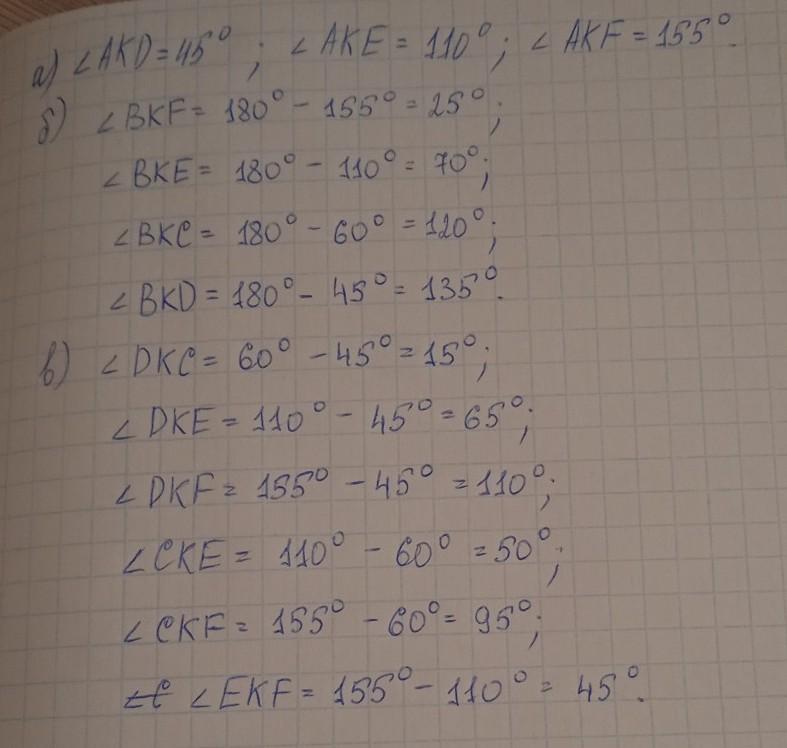 а) ∠AKD = 45°; ∠AKE = 110°; ∠AKF = 155°.
б) ∠BKF = 180° - 155° = 25°;
∠BKE = 180° - 110° = 70°;
∠BKC = 180° - 60° = 120°;
∠BKD = 180° - 45° = 135°.
в) ∠DKC = 60° - 45° = 15°;
∠DKE = 110° - 45° = 65°;
∠DKF = 155° - 45° = 110°;
∠CKE = 110° - 60° = 50°;
∠CKF = 155° - 60° = 95°;
∠EKF = 155° - 110° = 45°.